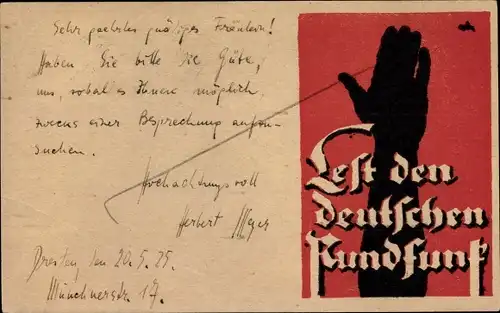 Sehr geehrtes gnädiges Fräulein!
Haben Sie bitte die Güte,
uns, sobald es Ihnen möglich,
zwecks einer Besprechung aufzu-
suchen.
Hochachtungsvoll
Herbert Meyer
Dresden, den 20.5.25.
Münchnerstr. 17.
Lest den
deutschen
Rundfunk